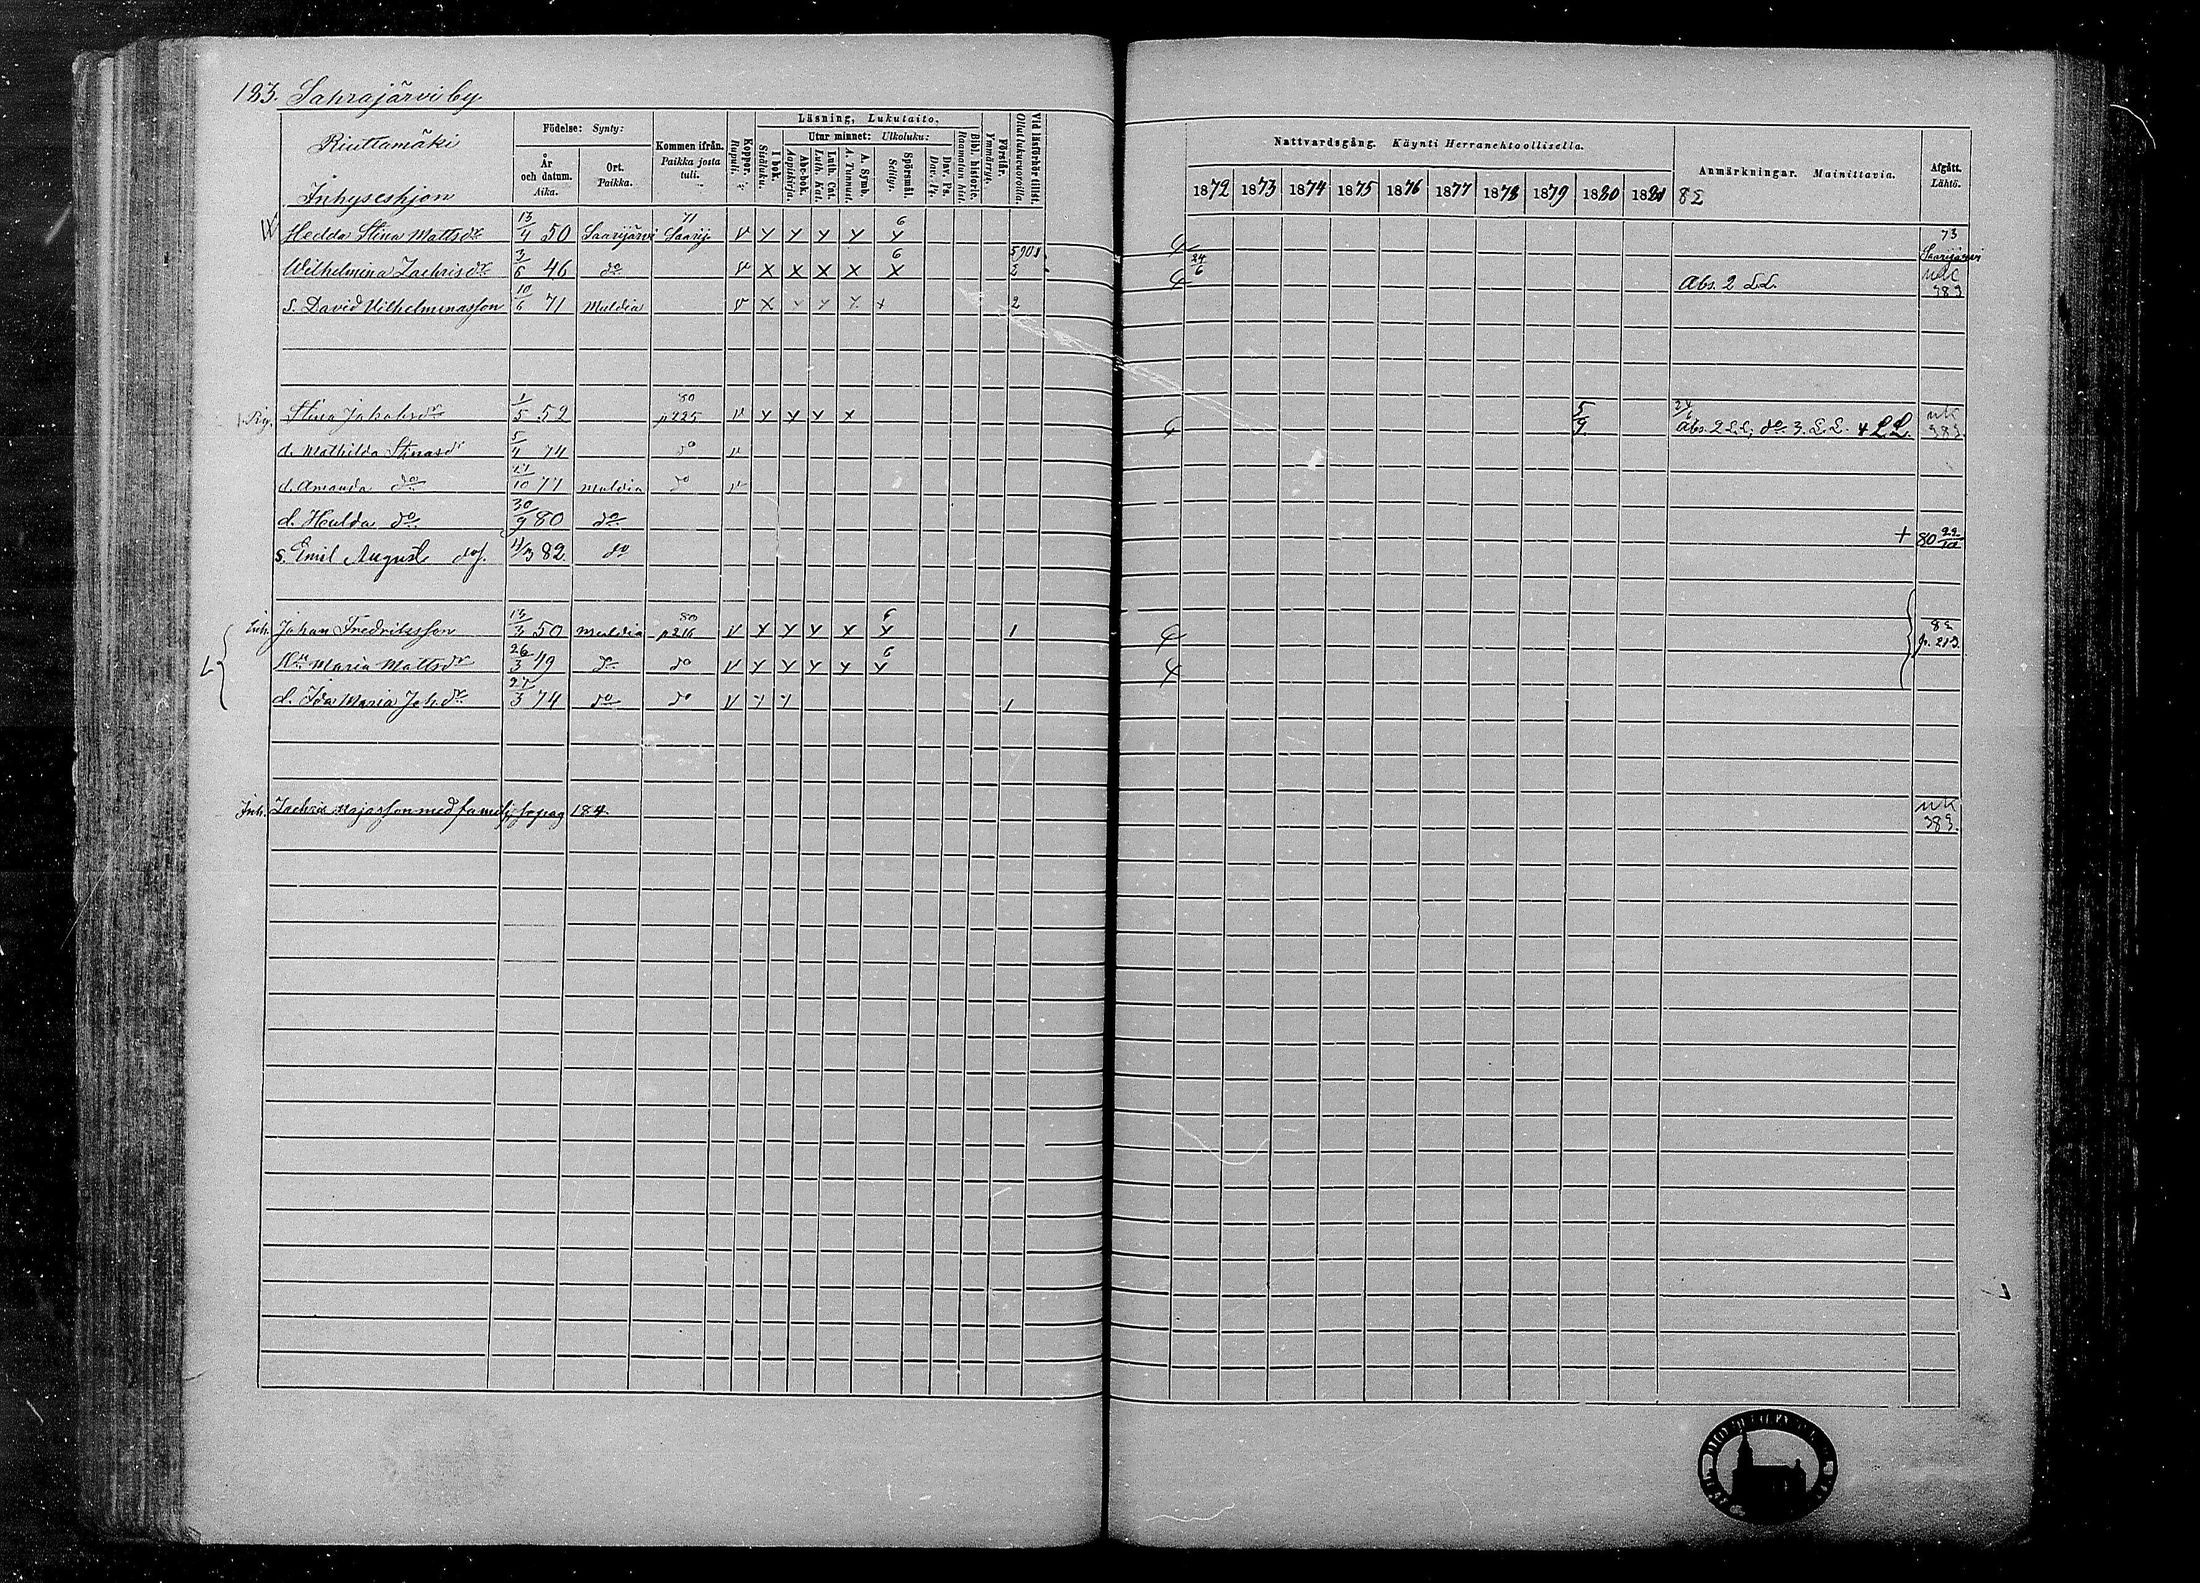 183. Sahrajärvi by.
Riuttamäki
Inhyseshjon
Födelse: Synty:
År och datum. Aika.
Ort. Paikka.
Kommen ifrån. Paikka josta tuli.
Koppor. Rupuli.
Läsning, Lukutaito,
I bok. Sisäluku.
Utur minnet: Ulkoluku:
Abc-bok. Aapiskirja.
Luth. Cat. Luth. Kat.
A. Symb. A. Tunnust.
Spörsmål. Selitys.
Dav. Ps. Dav. Ps.
Bibl. historie. Raamatun hist.
Förstår. Ymmärrys.
Vid läsförhör tillst. Ollut lukuvuoroilla.
Nattvardsgång. Käynti Herranehtoollisella.
1872 1873 1874 1875 1876 1877 1878 1879 1880 1881
Anmärkningar. Mainittavia.
Afgått. Lähtö.
Hedda Stina Mattsdr 13/4 50 Saarijärvi 71 Saarij. v y y y y 6 y 73 Saarijärvi
Wilhelmina Zachrisdr 3/6 46 do v x x x x 6 x 24/6 Abs. 2 LL. 383
s. David Vilhelminasson 10/6 71 Muldia v x y y y x 2
Stina Johansdr 1/5 52 80 p 225 v y y y x 5/9 Abs. 2 LL; do. 3. LL. 4 LL. 383.
d. Mathilda Stinasdr 5/4 74 do v
d. Amanda do /10 77 Muldia do v
d. Hulda do 30/9 80 do + 80 22/10
s. Emil August do. 11/3 82. do
Inh. Johan Fredriksson 13/3 50 Muldia 80 p 216 v y y y x 6 y 1 82 p. 213
Hu Maria Mattsdr 26/3 49 do do v y y y y 6 y
d. Ida Maria Joh.dr 27/3 74 do do v y y 1
Inh. Zachris Majasson med familj se pag 184. 383.